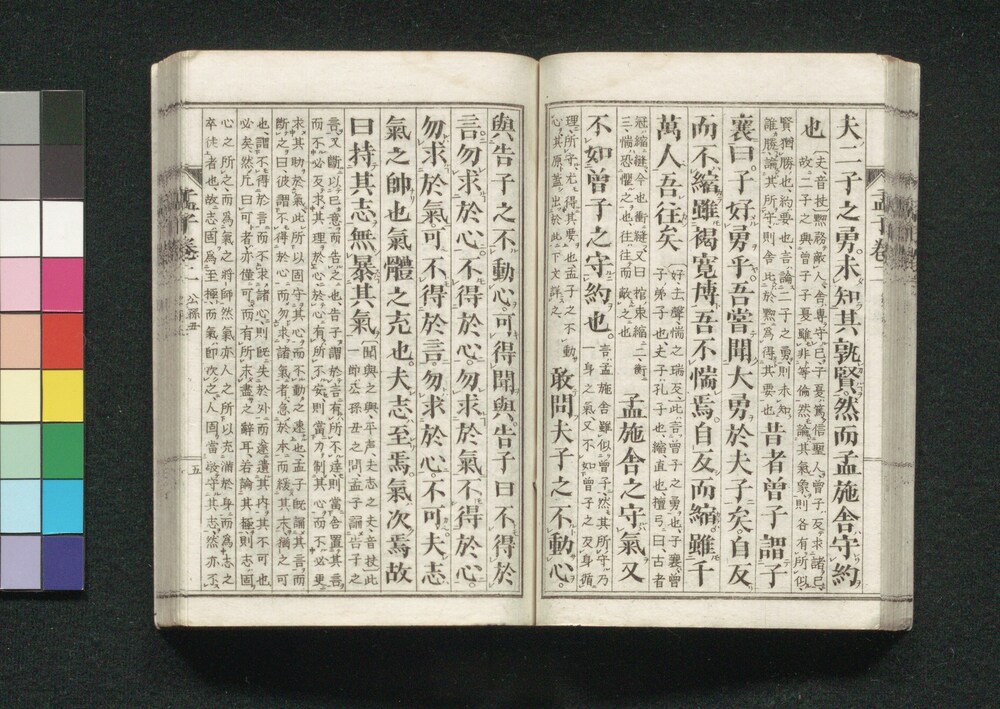 孟子卷二
夫二子之勇未知其孰賢然而孟施舍守約
也
夫音扶黝務敵人舍專守己子夏篤信聖人曾子反求諸己
故二子之與曾子子夏雖非等倫然論其氣象則各有所似
賢猶勝也約要也言論二子之勇則未知
誰勝論其所守則舍比於黝為得其要也
昔者曾子謂子
襄曰子好勇乎吾嘗聞大勇於夫子矣自反
而不縮雖褐寬博吾不惴焉自反而縮雖千
萬人吾往矣
好去聲惴之瑞反此言曾子之勇也子襄曾
子弟子也夫子孔子也縮直也檀弓曰古者
冠縮縫今也衡縫又曰棺束縮二衡
三惴恐懼之也往往而敵之也
孟施舍之守氣又
不如曾子之守約也
言孟施舍雖似曾子然其所守乃
一身之氣又不如曾子之反身循
理所守尤得其要也孟子之不動
心其原蓋出於此下文詳之
敢問夫子之不動心
與告子之不動心可得聞與告子曰不得於
言勿求於心不得於心勿求於氣不得於心
勿求於氣可不得於言勿求於心不可夫志
氣之帥也氣體之充也夫志至焉氣次焉故
曰持其志無暴其氣
聞與之與平声夫志之夫音扶此
一節公孫丑之問孟子誦告子之
言又斷以己意而告之也告子謂於言有所不達則當舍置其言
而不必反求其理於心於心有所不安則當力制其心而不必更
求其助於氣此所以固守其心而不動之速也孟子既誦其言而
斷之曰彼謂不得於心而勿求諸氣者急於本而緩其末猶之可
也謂不得於言而不求諸心則既失於外而遂遺其內其不可也
必矣然凡曰可者亦僅可而有所未盡之辭耳若論其極則志固
心之所之而為氣之將帥然氣亦人之所以充滿於身而為志之
卒徒者也故志固為至極而氣即次之人固當敬守其志然亦不
孟子卷二 公孫丑 五